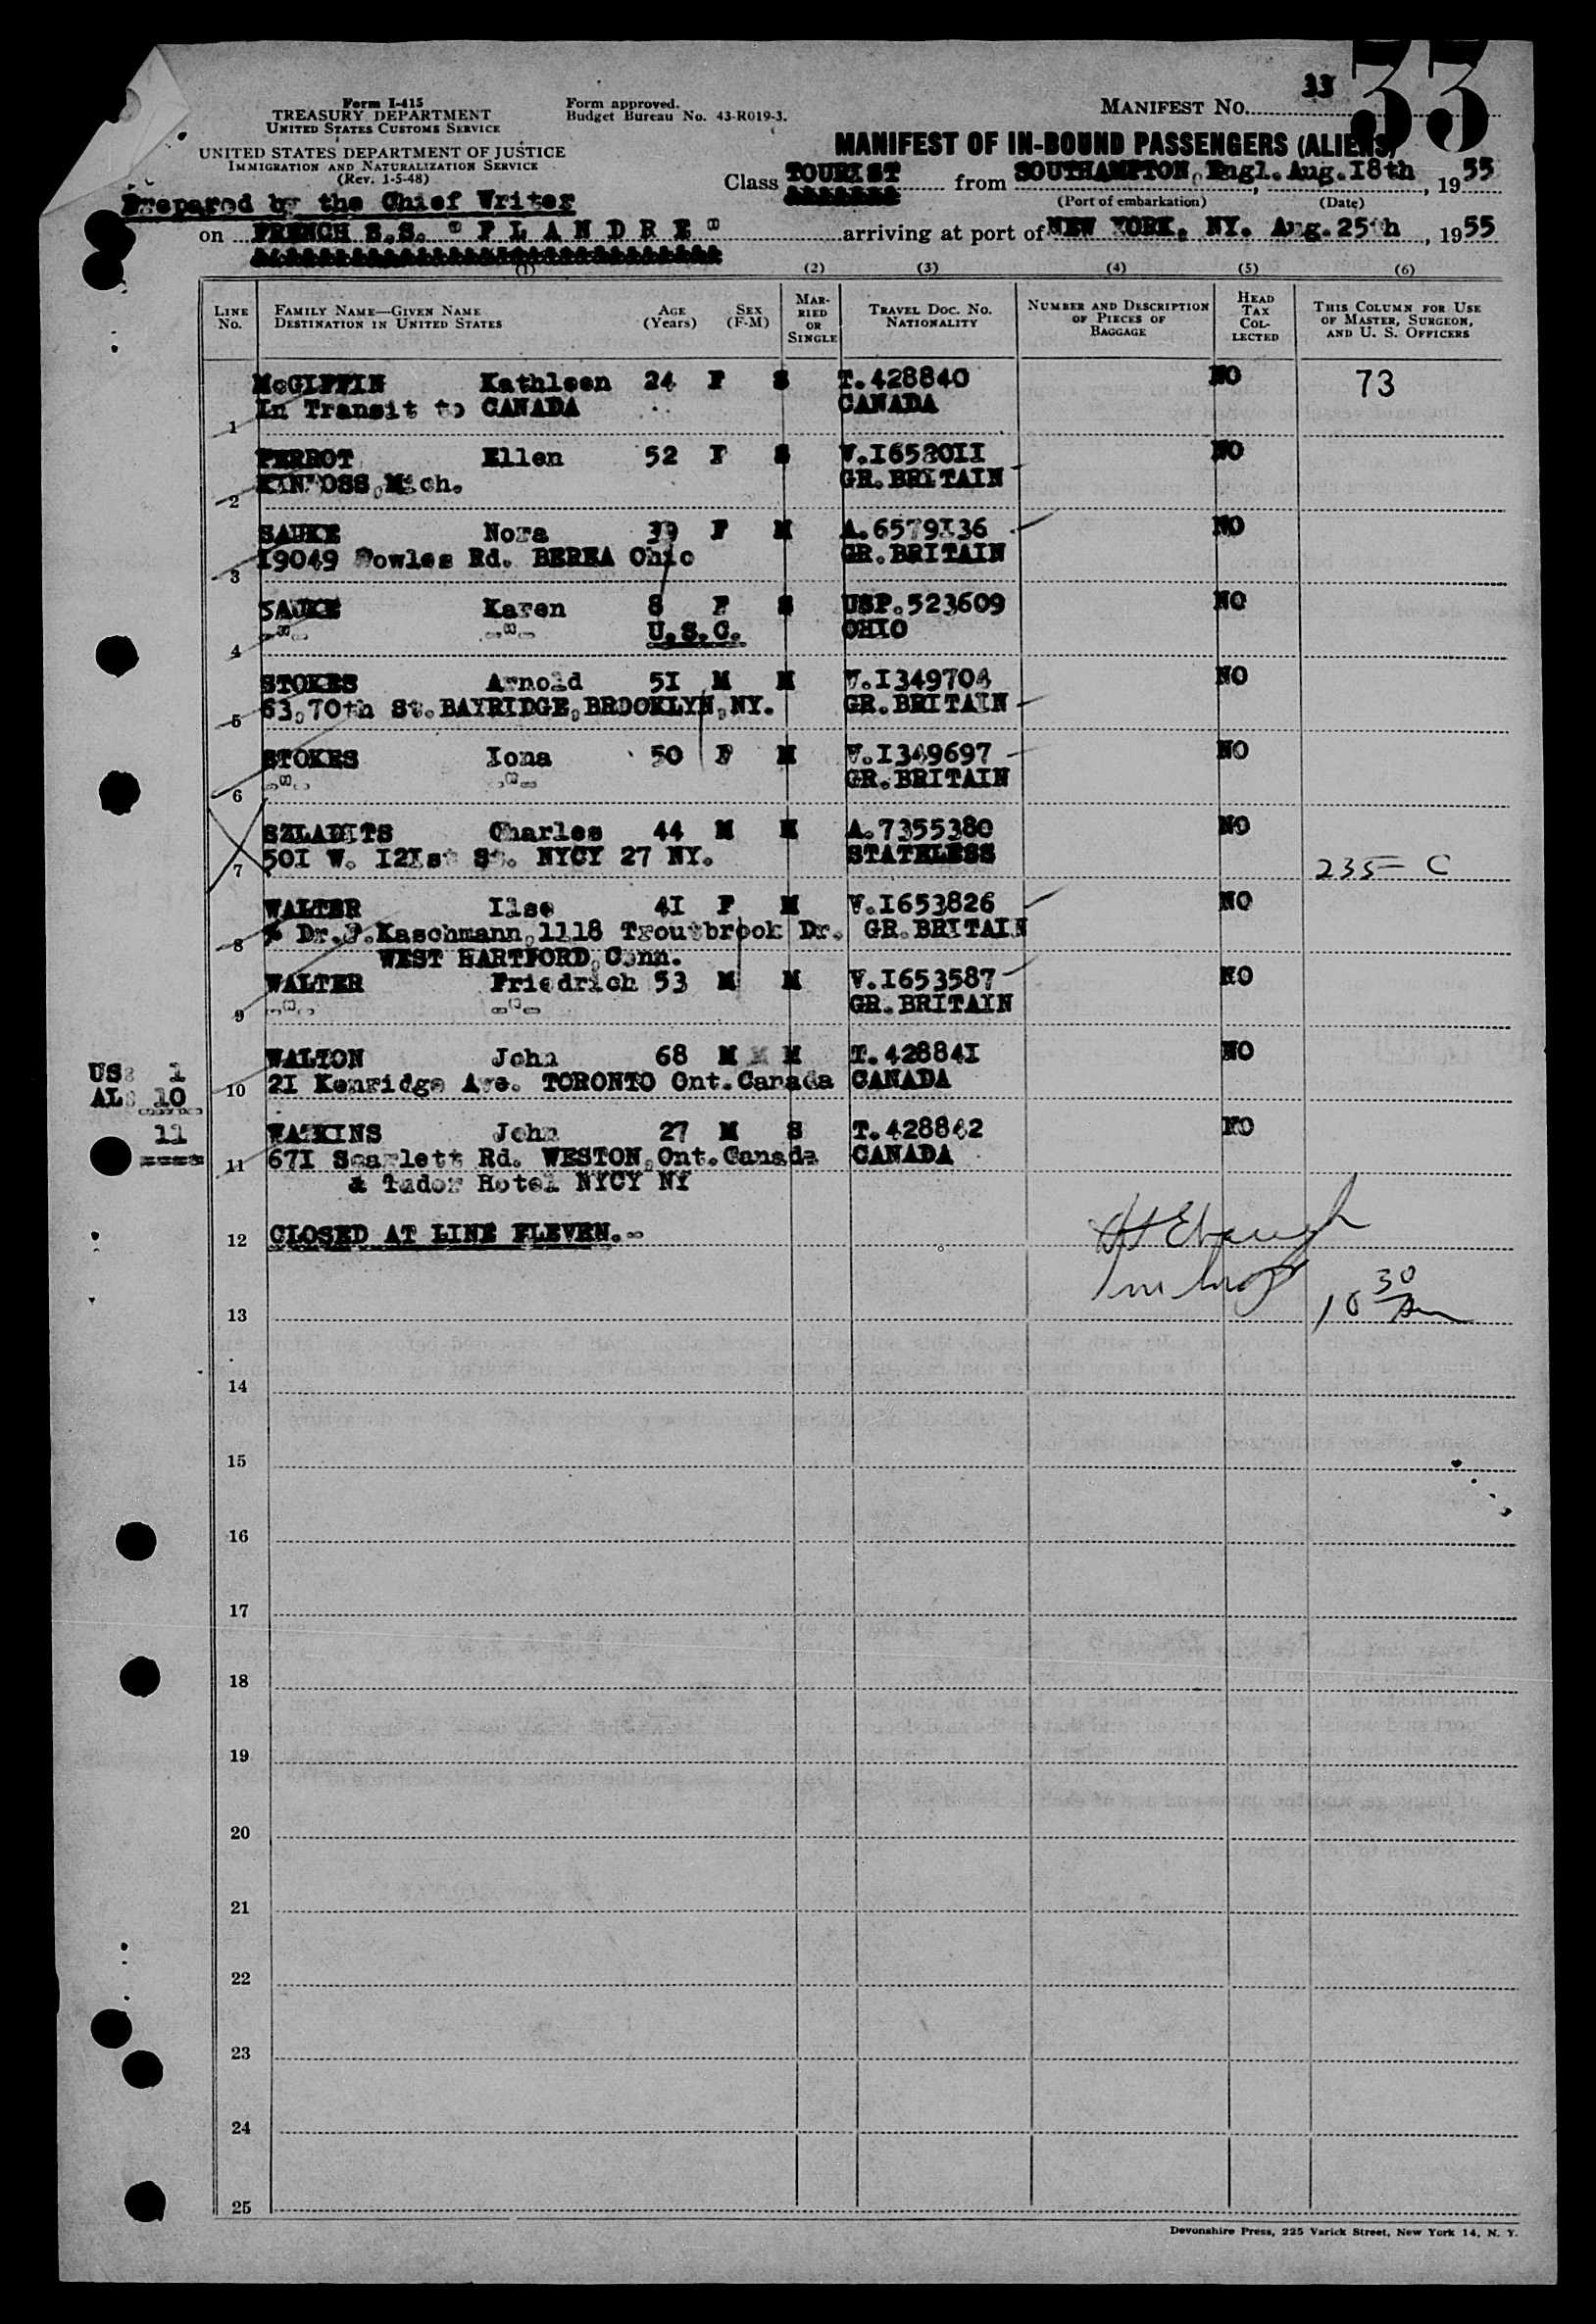 33
33
Form I-415
TREASURY DEPARTMENT
UNITED STATES CUSTOMS SERVICE
UNITED STATES DEPARTMENT OF JUSTICE
IMMIGRATION AND NATURALIZATION SERVICE
(Rev. 1-5-48)
Form approved.
Budget Bureau No. 43-R019-3.
MANIFEST No.
MANIFEST OF IN-BOUND PASSENGERS (ALIENS)
Class TOURIST from SOUTHAMPTON, Engl. Aug.18th, 1955
(Port of embarkation) (Date)
Prepared by the Chief Writer
on FRENCH S.S. "FLANDRE" arriving at port of NEW YORK, NY. Aug.25th, 1955
(1) (2) (3) (4) (5) (6)
LINE No. FAMILY NAME—GIVEN NAME DESTINATION IN UNITED STATES AGE (Years) SEX (F-M) MARRIED OR SINGLE TRAVEL DOC. NO. NATIONALITY NUMBER AND DESCRIPTION OF PIECES OF BAGGAGE HEAD TAX COLLECTED THIS COLUMN FOR USE OF MASTER, SURGEON, AND U. S. OFFICERS
McGIFFIN Kathleen 24 F S T.428840 NO 73
1 In Transit to CANADA CANADA
PERROT Ellen 52 F S V.1652011 NO
2 KINROSS,Mich. GR.BRITAIN
SAUKE Nora 39 F M A.6579136 NO
3 19049 Fowles Rd. BEREA Ohio GR.BRITAIN
SAUKE Karen 8 F S USP.523609 NO
4 -"- -"- U.S.C. OHIO
STOKES Arnold 51 M M V.1349704 NO
5 63,70th St.BAYRIDGE,BROOKLYN,NY. GR.BRITAIN
STOKES Iona 50 F M V.1349697 NO
6 -"- -"- GR.BRITAIN
SZLADITS Charles 44 M M A.7355380 NO
7 501 W. 121st St. NYCY 27 NY. STATELESS 235 - C
WALTER Ilse 41 F M V.1653826 NO
8 % Dr.F.Kaschmann,1118 Troutbrook Dr. GR.BRITAIN
WEST HARTFORD,Conn.
WALTER Friedrich 53 M M V.1653587 NO
9 -"- -"- GR.BRITAIN
WALTON John 68 M M T.428841 NO
US: 1
10 21 Kenridge Ave. TORONTO Ont.Canada CANADA
AL: 10
11
WATKINS John 27 M S T.428842 NO
11 671 Scarlett Rd. WESTON,Ont.Canada CANADA
& Tudor Hotel NYCY NY
12 CLOSED AT LINE ELEVEN.-
10 30 Am
13
14
15
16
17
18
19
20
21
22
23
24
25
Devonshire Press, 225 Varick Street, New York 14, N. Y.